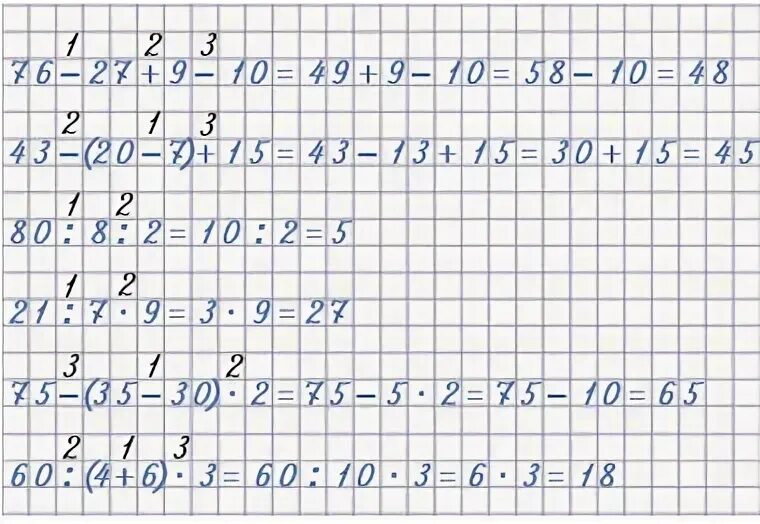 1 2 3
76 - 27 + 9 - 10 = 49 + 9 - 10 = 58 - 10 = 48
2 1 3
43 - (20 - 7) + 15 = 43 - 13 + 15 = 30 + 15 = 45
1 2
80 : 8 : 2 = 10 : 2 = 5
1 2
21 : 7 · 9 = 3 · 9 = 27
3 1 2
75 - (35 - 30) · 2 = 75 - 5 · 2 = 75 - 10 = 65
2 1 3
60 : (4 + 6) · 3 = 60 : 10 · 3 = 6 · 3 = 18